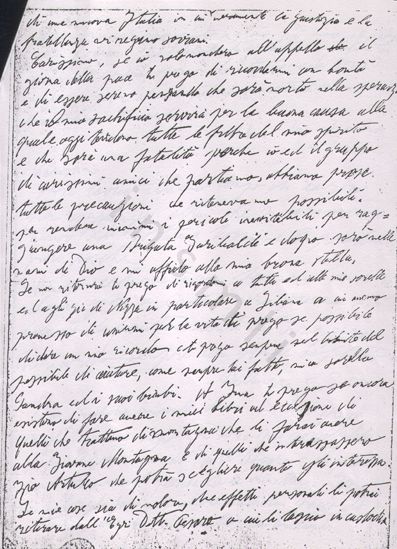 di una nuova Italia in cui veramente la giustizia e la
fratellanza vi regnano sovrani.
Carissimo, se io mancherò all'appello il
giorno della pace ti prego di ricordarmi con bontà
e di essere sereno pensando che sarò morto nella speranza
che il mio sacrificio servirà per la buona causa alla
quale oggi tendono tutte le fibre del mio spirito
e che sarà una fatalità perché io ed il gruppo
di carissimi amici che partiamo, abbiamo prese
tutte le precauzioni che ritenevamo possibili
per rendere minimi i pericoli inevitabili per rag-
giungere una Brigata Garibaldi e dopo sarò nelle
mani di Dio e mi affido alla mia buona stella.
Se non ritornerò ti prego di ricordarmi a tutti ed alle mie sorelle
ed agli zii di Nizza in particolare a Liliana a cui avevo
promesso di unirmi per la vita che prego se possibile
di dare un mio ricordo e ti prego sempre nel limite del
possibile di aiutare, come sempre hai fatto, mia sorella
Sandra ed i suoi bimbi. ti prego se ancora
esistono di fare avere i miei libri ad eccezione di
quelli che trattano di montagna che li farai avere
alla Giovane Montagna e di quelli che interessassero
zio Arturo che potrà scegliere quanto gli interessa.
Le mie cose sia di valore, che effetti personali li potrai
ritirare dall'Egr. Dott. Cesare a cui li lascio in custodia